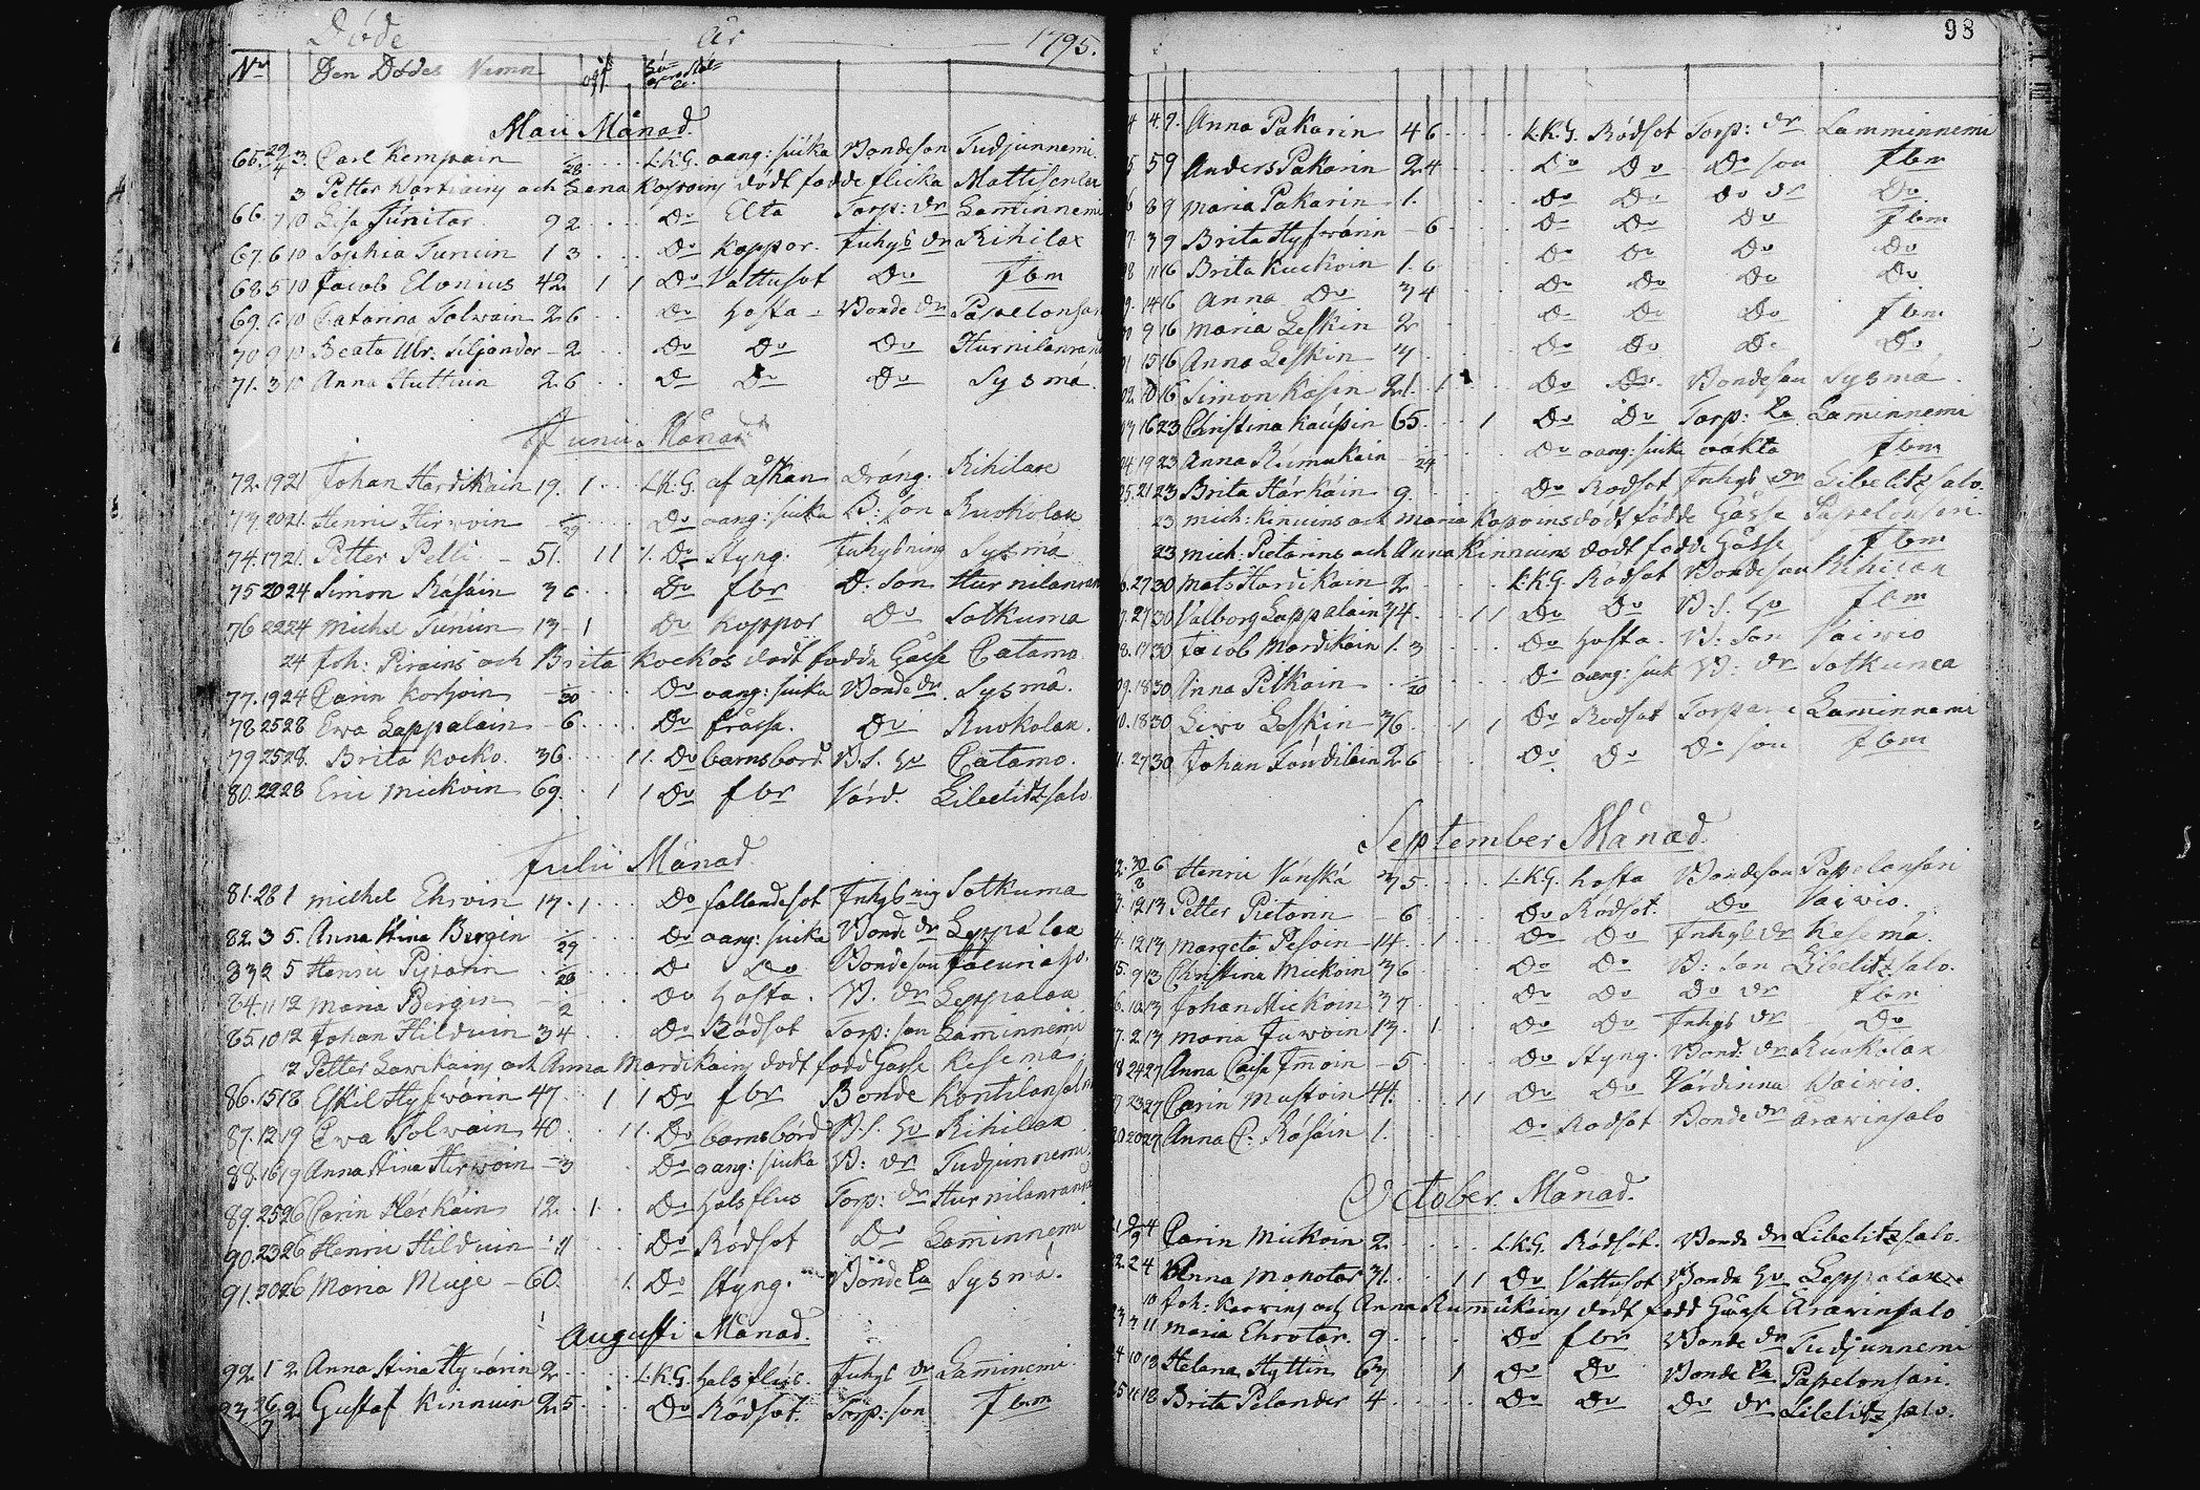 Döde År 1795.
No Den Dödes Namn
Maii Månad.
65. 29/4 3. Carl Kempain 1/28 L.K.G. oang: siuka Bondeson Tudjunnemi.
3 Petter Wartiains och Lena Kossoins dödt födde flicka Mattisenlax
66. 7 10 Lisa Junitar 92 Do Elta Torp: dr Laminnemi
67. 6 10 Sophia Turuin 1 3 Do Koppor. Inhys dr Rihilax
68 5 10 Jacob Elonius 42. 1 1 Do Vattusot Do Ibm
69. 6 10 Catarina Tolwain 2 6 Do Hosta Bonde dr Papelonsari
70 9 10 Beata Ulr: Siljander - 2 Do Do Do Hurnilanranda
71. 3 10 Anna Huttuin 2 6 Do Do Do Sysmä.
Junii Månad
72. 19 21 Johan Hardikain 19. 1 L.K.G. af åskan dräng. Rihilax
73 20 21. Henric Hirwoin 1/29 Do oang: siuka B: son Ruokolax
74. 17 21. Petter Pelli - 51. 1 1 1. Do Styng. Inhysning Sysmä
75 20 24 Simon Räsäin 3 6 Do fbr D: son Hurnilanranda
76 22 24 Michel Turuin 13 - 1 Do Koppor Do Sotkuma
24 Joh: Pirains och Brita Kockos dödt födde Gåsse Catamo
77. 19 24 Carin Korhoin 1/30 Do oang: siuka Bonde dr. Sysmä.
78 25 28 Ewa Lappalain - 6. Do fråssa. Do Ruokolax.
79 25 28. Brita Kocko. 36 1 1. Do barnsbörd B. s. Hu Catamo.
80. 22 28 Eric Mickoin 69. 1 1 Do fbr Värd. Libelitzsalo
Julii Månad
81. 28 1 Michel Ehroin 17. 1 Do fallandesot Inhysnig Sotkuma
82. 3 5. Anna Stina Bergin 1/29 Do oang: siuka Bonde dr Leppälax
83 2 5 Henric Do Do Bondeson
84. 11 12 Maria Bergin 1/2 Do Hosta. B. dr Leppälax
85. 10 12 Johan Hilduin 3 4 Do Rödsot Torp: son Laminnemi
12 Petter Lawikains och Anna Mardikains dödt född Gåsse Kesemä.
86. 15 18 Eskil Hyfwärin 47. 1 1 Do fbr Bonde Kontilansalo
87. 12 19 Ewa Tolwain 40. 1 1. Do barnsbörd B. s. Hu Rihilax
88. 16 19 Anna Stina Hirwoin - 3 Do oang: siuka B: dr Tudjunnemi
89. 25 26 Carin Härkäin 12. 1. Do Halsflus Torp: dr Hurnilanranda
90. 23 26 Henric Hilduin Do Rödsot Do Laminnemi
91. 20 26 Maria Muje - 60. 1. Do Styng. Bonde Ea Sysmä.
Augusti Månad.
92 1 2 Anna Stina Hyvärin 2 L.K.G. Halsflus. Inhys dr Laminnemi.
93 26/7 2. Gustaf Kinnuin 2. 5 Do Rödsot. Torp: son Ibm
98
4. 9. Anna Pakarin 4 6 L.K.G. Rödsot Torp: dr Lamminnemi
5 9 Anders Pakarin 2 4 Do Do Do son Ibm
8 9 Maria Pakarin 1. Do Do Do dr Do
3 9 Brita Hyfwärin - 6 Do Do Do Ibm
11 16 Brita Kuckoin 1. 6 Do Do Do Do
14 16 Anna Do 3 4 Do Do Do Do
9 16 Maria Leskin 2 Do Do Do Ibm
15 16 Anna Leskin 7 Do Do Do Do
10 16 Simon Kosin 21. 1. Do Do Bondeson Sysmä.
16 23 Christina Kaupin 65. 1 Do Do Torp: Ea Laminnemi
19 23 Anna Rumukain 1/24 Do oang: siuka wåkta Ibm
21 23 Brita Härkäin 9. Do Rödsot Inhys dr Libelitzsalo.
23 Mich: Kinnuins och Maria Kossoins dödt födde Gåsse Papelonsari.
23 Mich: Pietarins och Anna Kinnuins dödt födde Gåsse Ibm
27 30 Mats Hardikain 2 L.K.G. Rödsot Bondeson Rihilax
27 30 Valborg Lappalain 34. 1 1 Do Do B: s. Hu Ibm
17 30 Jacob Mardikain 1. 3 Do Hosta. B: son Vaivio
18 30 Anna Pitkain 1/20 Do oang: siuk B: dr Sotkuma
18 30 Leskin 36 1 1 Do Rödsot Torpare Laminnemi
27 30 Johan 2 6 Do Do Do son Ibm
September Månad.
30/8 6 Henric Vänskä 3 5. L.K.G. Hosta Bondeson Papelonsari
12 13 Petter Pietarin - 6 Do Rödsot. Do Vaivio.
12 13 Margeta Pesoin - 14. 1 Do Do Inhys dr Kesemä.
9 13 Christina Mickoin 3 6 Do Do B: son Libelitzsalo.
10. 13 Johan Mickoin 3 Do Do Do dr Ibm
2 13 Maria Juwoin 13. 1. Do Do Inhys dr Do
24 27 Anna Caisa Immoin - 5 Do Styng. Bond: dr Ruokolax
23 27 Carin Mustoin 44. 1 1 Do Do Värdinna Waivio.
20 27 Anna C: Räsäin 1. Do Rödsot Bonde dr Arawinsalo
October Månad.
4 Carin Mickoin 2. L.K.G. Rödsot. Bonde dr Libelitzsalo.
2 4 Anna Monotar 31. 1 1 Do Vattusot Bonde Hu Leppälax.
10 Joh: Karwins och Anna Rummukains dödt född Gåsse Arawinsalo
3 11 Maria Ehrotar 9 Do fbr Bonde dr Tudjunnemi
10 18 Helena Hyttin 67 1 Do Do Bonde Ea Papelonsari.
11 18 Brita Pelander 4 Do Do Do dr Libelitzsalo.